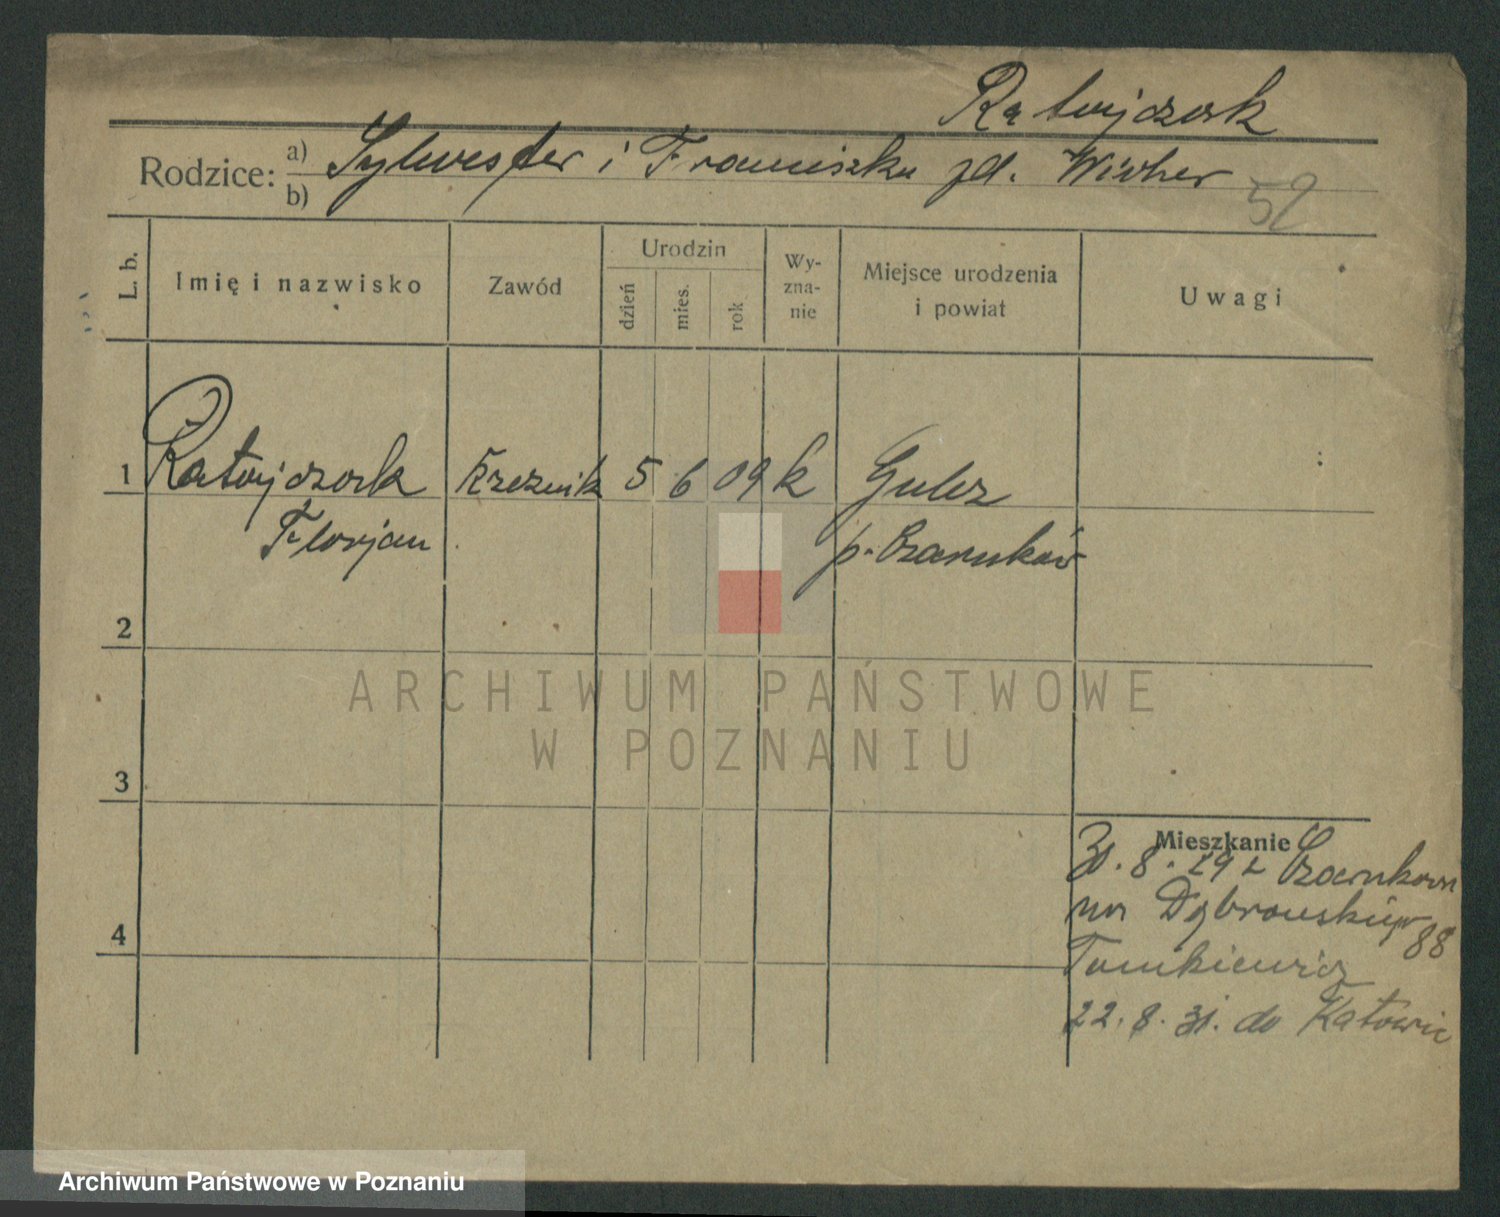 Ratajczak
Rodzice: a) b) Sylwester i Franciszka zd. Wicher
52
L. b.
Imię i nazwisko
Zawód
Urodzin
dzień
mies.
rok
Wy-
zna-
nie
Miejsce urodzenia
i powiat
Uwagi
1 Ratajczak Rzeznik 5 6 09 k Gulcz
Florjan p. Czarnków
2
ARCHIWUM PAŃSTWOWE
W POZNANIU
3
Mieszkanie
31. 8. 29 z Czarnkowa
na Dąbrowskiego 88
Tomkiewicz
22. 8. 31. do Katowic
4
Archiwum Państwowe w Poznaniu